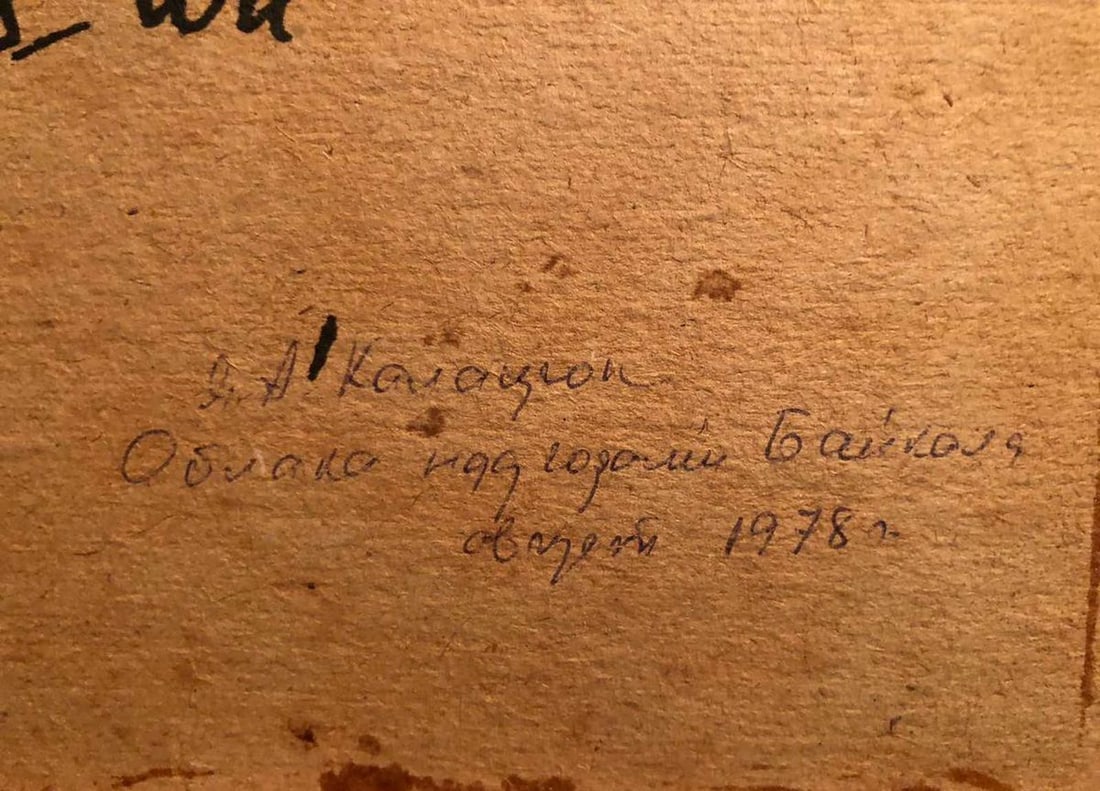 Я. А. Калашон
Облака над горами Байкала
август 1978 г.